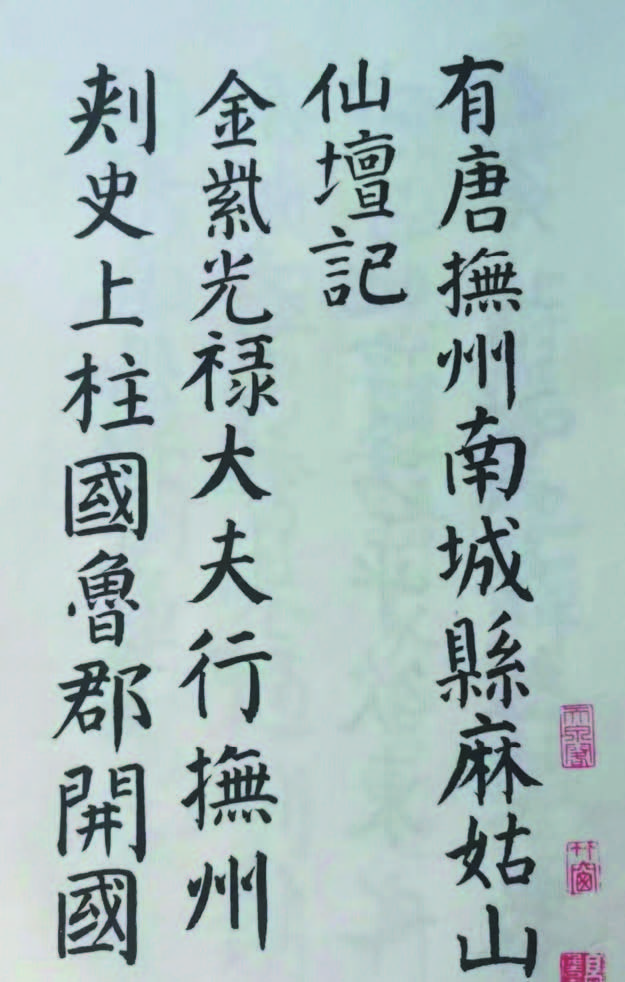 有唐撫州南城縣麻姑山
仙壇記
金紫光禄大夫行撫州
刺史上柱國魯郡開國